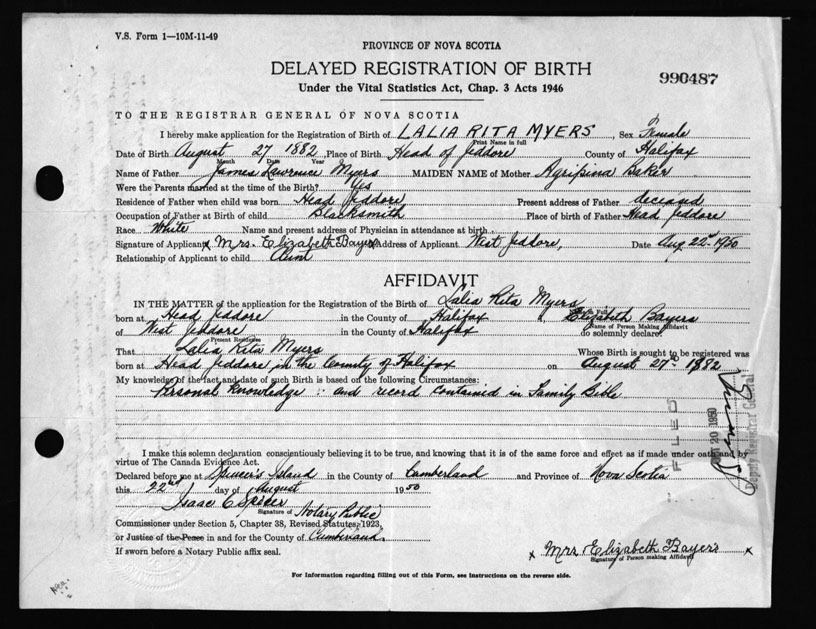 V.S. Form 1—10M-11-49
PROVINCE OF NOVA SCOTIA
DELAYED REGISTRATION OF BIRTH
Under the Vital Statistics Act, Chap. 3 Acts 1946
990487
TO THE REGISTRAR GENERAL OF NOVA SCOTIA
I hereby make application for the Registration of Birth of LALIA RITA MYERS, Sex Female
Print Name in full
Date of Birth August 27 1882, Place of Birth Head of Jeddore County of Halifax
Month Date Year
Name of Father James Lawrence Myers MAIDEN NAME of Mother Agripina Baker
Were the Parents married at the time of the Birth? Yes
Residence of Father when child was born Head Jeddore Present address of Father deceased
Occupation of Father at Birth of child Blacksmith Place of birth of Father Head Jeddore
Race White Name and present address of Physician in attendance at birth
Signature of Applicant x Mrs. Elizabeth Bayers x Address of Applicant West Jeddore, Date Aug 22nd 1950
Relationship of Applicant to child Aunt
AFFIDAVIT
IN THE MATTER of the application for the Registration of the Birth of Lalia Rita Myers
born at Head Jeddore in the County of Halifax I, Elizabeth Bayers
Name of Person Making Affidavit
of West Jeddore in the County of Halifax do solemnly declare:
Present Residence
That Lalia Rita Myers Whose Birth is sought to be registered was
born at Head Jeddore in the County of Halifax on August 27th 1882
My knowledge of the fact and date of such Birth is based on the following Circumstances:
Personal Knowledge: and record contained in Family Bible
I make this solemn declaration conscientiously believing it to be true, and knowing that it is of the same force and effect as if made under oath and by
virtue of The Canada Evidence Act.
Declared before me at Spencer's Island in the County of Cumberland and Province of Nova Scotia
this 22nd day of August 1950
Isaac C Spicer
Signature of Notary Public
Commissioner under Section 5, Chapter 38, Revised Statutes, 1923,
or Justice of the Peace in and for the County of Cumberland
If sworn before a Notary Public affix seal.
x Mrs Elizabeth Bayers x
Signature of Person making Affidavit
For Information regarding filling out of this Form, see Instructions on the reverse side.
FILED
20 1950
Deputy Registrar General